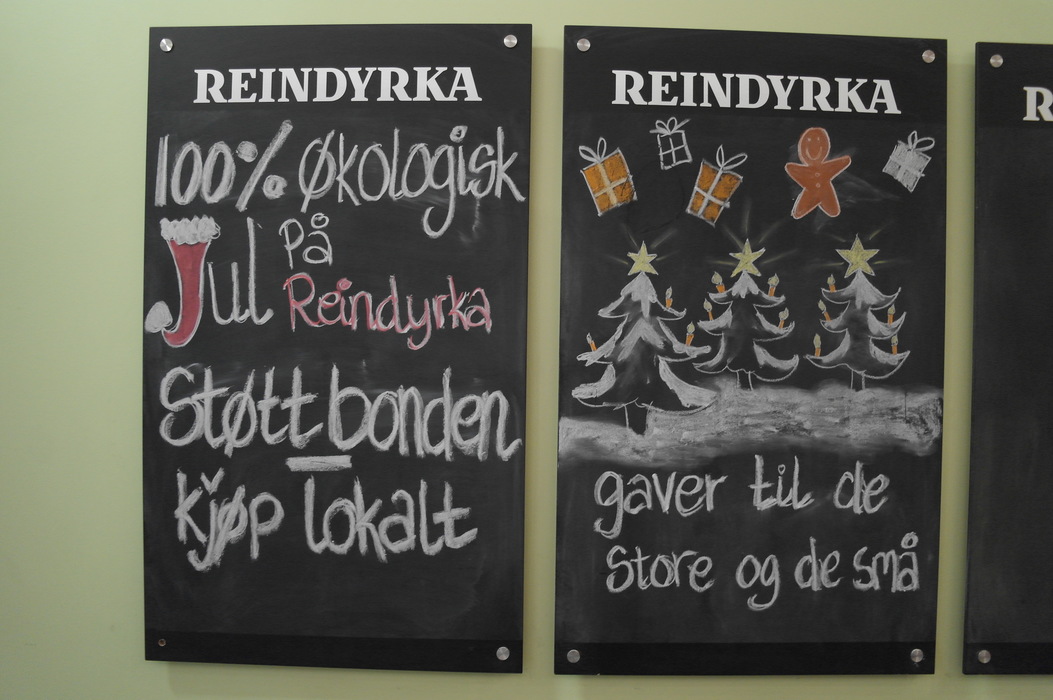 REINDYRKA
100% Økologisk
Jul på
Reindyrka
Støtt bonden
kjøp lokalt
REINDYRKA
gaver til de
store og de små
R